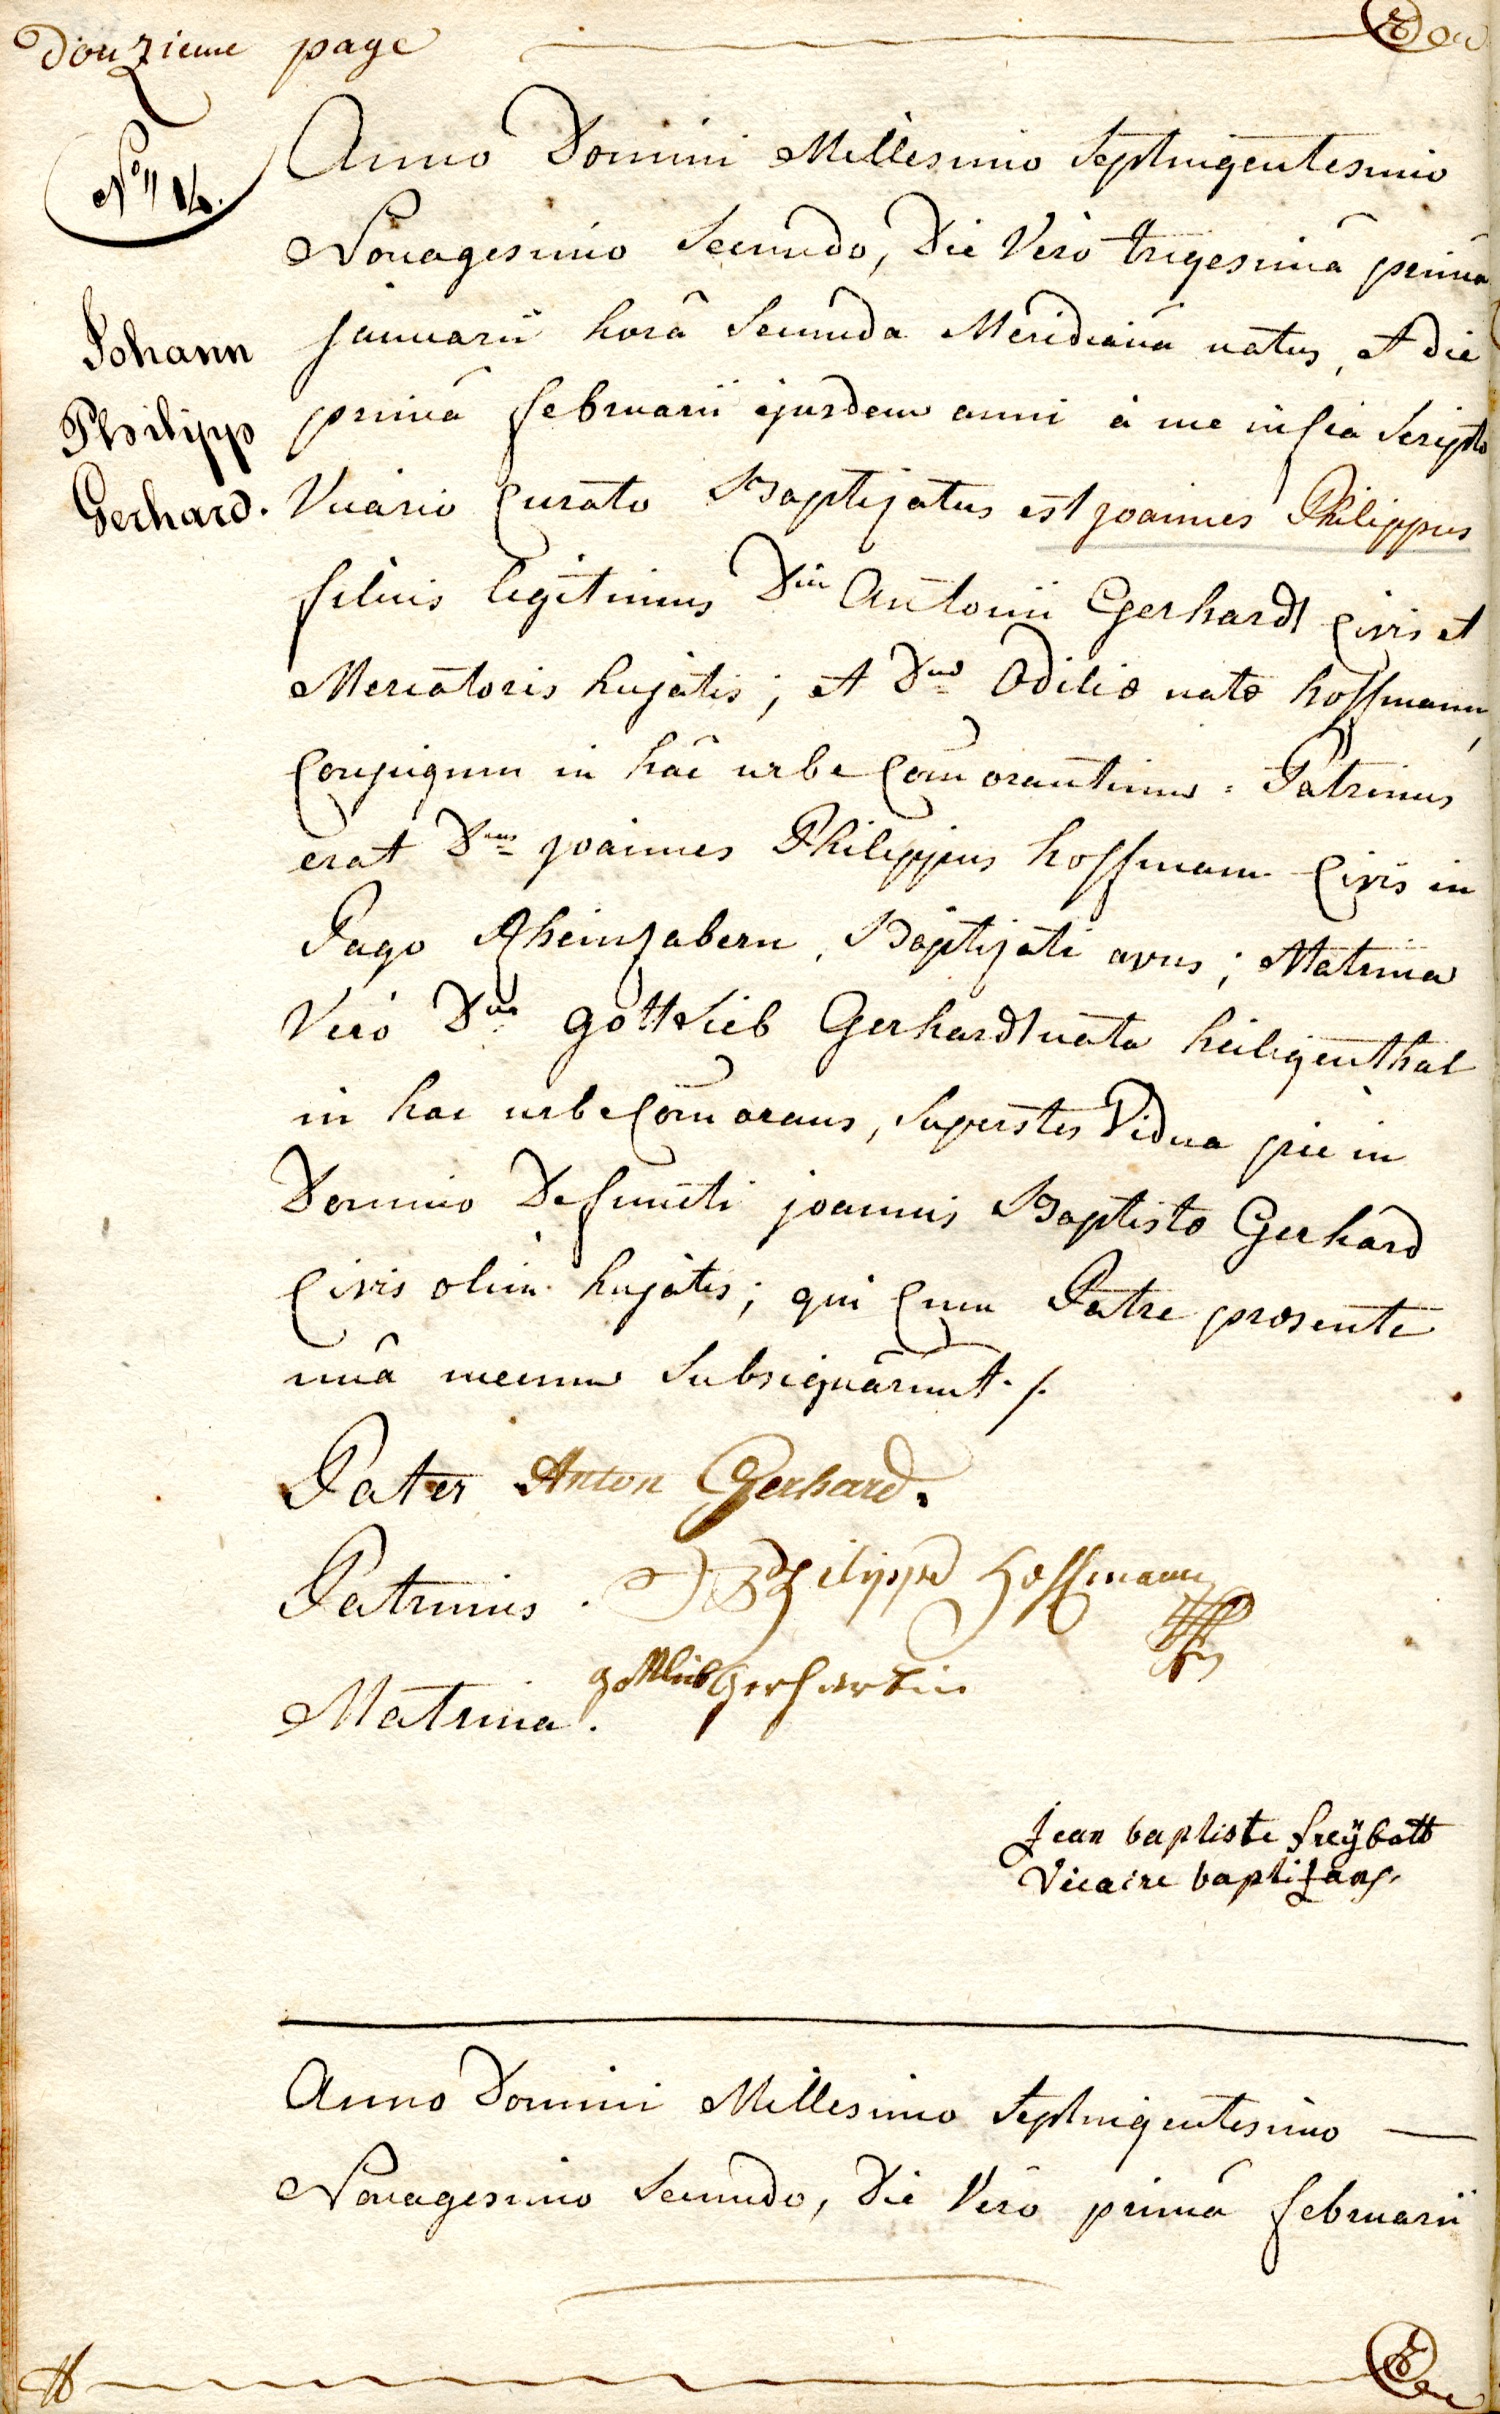 Douzieme page
No 16.
Johann
Philipp
Gerhard.
Anno Domini Millesimo Septingentesimo
Nonagesimo Secundo, Die Vero trigesimâ primâ
januarii horâ Secunda Meridianâ natus, et die
primâ februarii ejusdem anni à me infra Scripto
Vicario Curato Baptizatus est joannes Philippus
filius legitimus Dni Antonii Gerhardt Civis et
Mercatoris hujatis; et Dnæ Odiliæ natæ hoffmann,
Conjugum in hâc urbe Com̄orantium. Patrinus
erat Dnus joannes Philippus hoffmann Civis in
Pago Rheinzabern, Baptizati avus; Matrina
Verò Dna gottlieb Gerhardt nata heiligenthal
in hac urbe Com̄orans, Superstes Vidua pie in
Domino Defuncti joannis Baptistæ Gerhard
Civis olim hujatis; qui Cum Patre præsente
unâ mecum Subsignârunt ./.
Pater Anton Gerhard.
Patrinus. Philipp Hoffmann
Matrina. gottlieb gerhartin
Jean baptiste freÿbott
Vicaire baptizans.
Anno Domini Millesimo Septingentesimo —
Nonagesimo Secundo, Die Verò primâ februarii